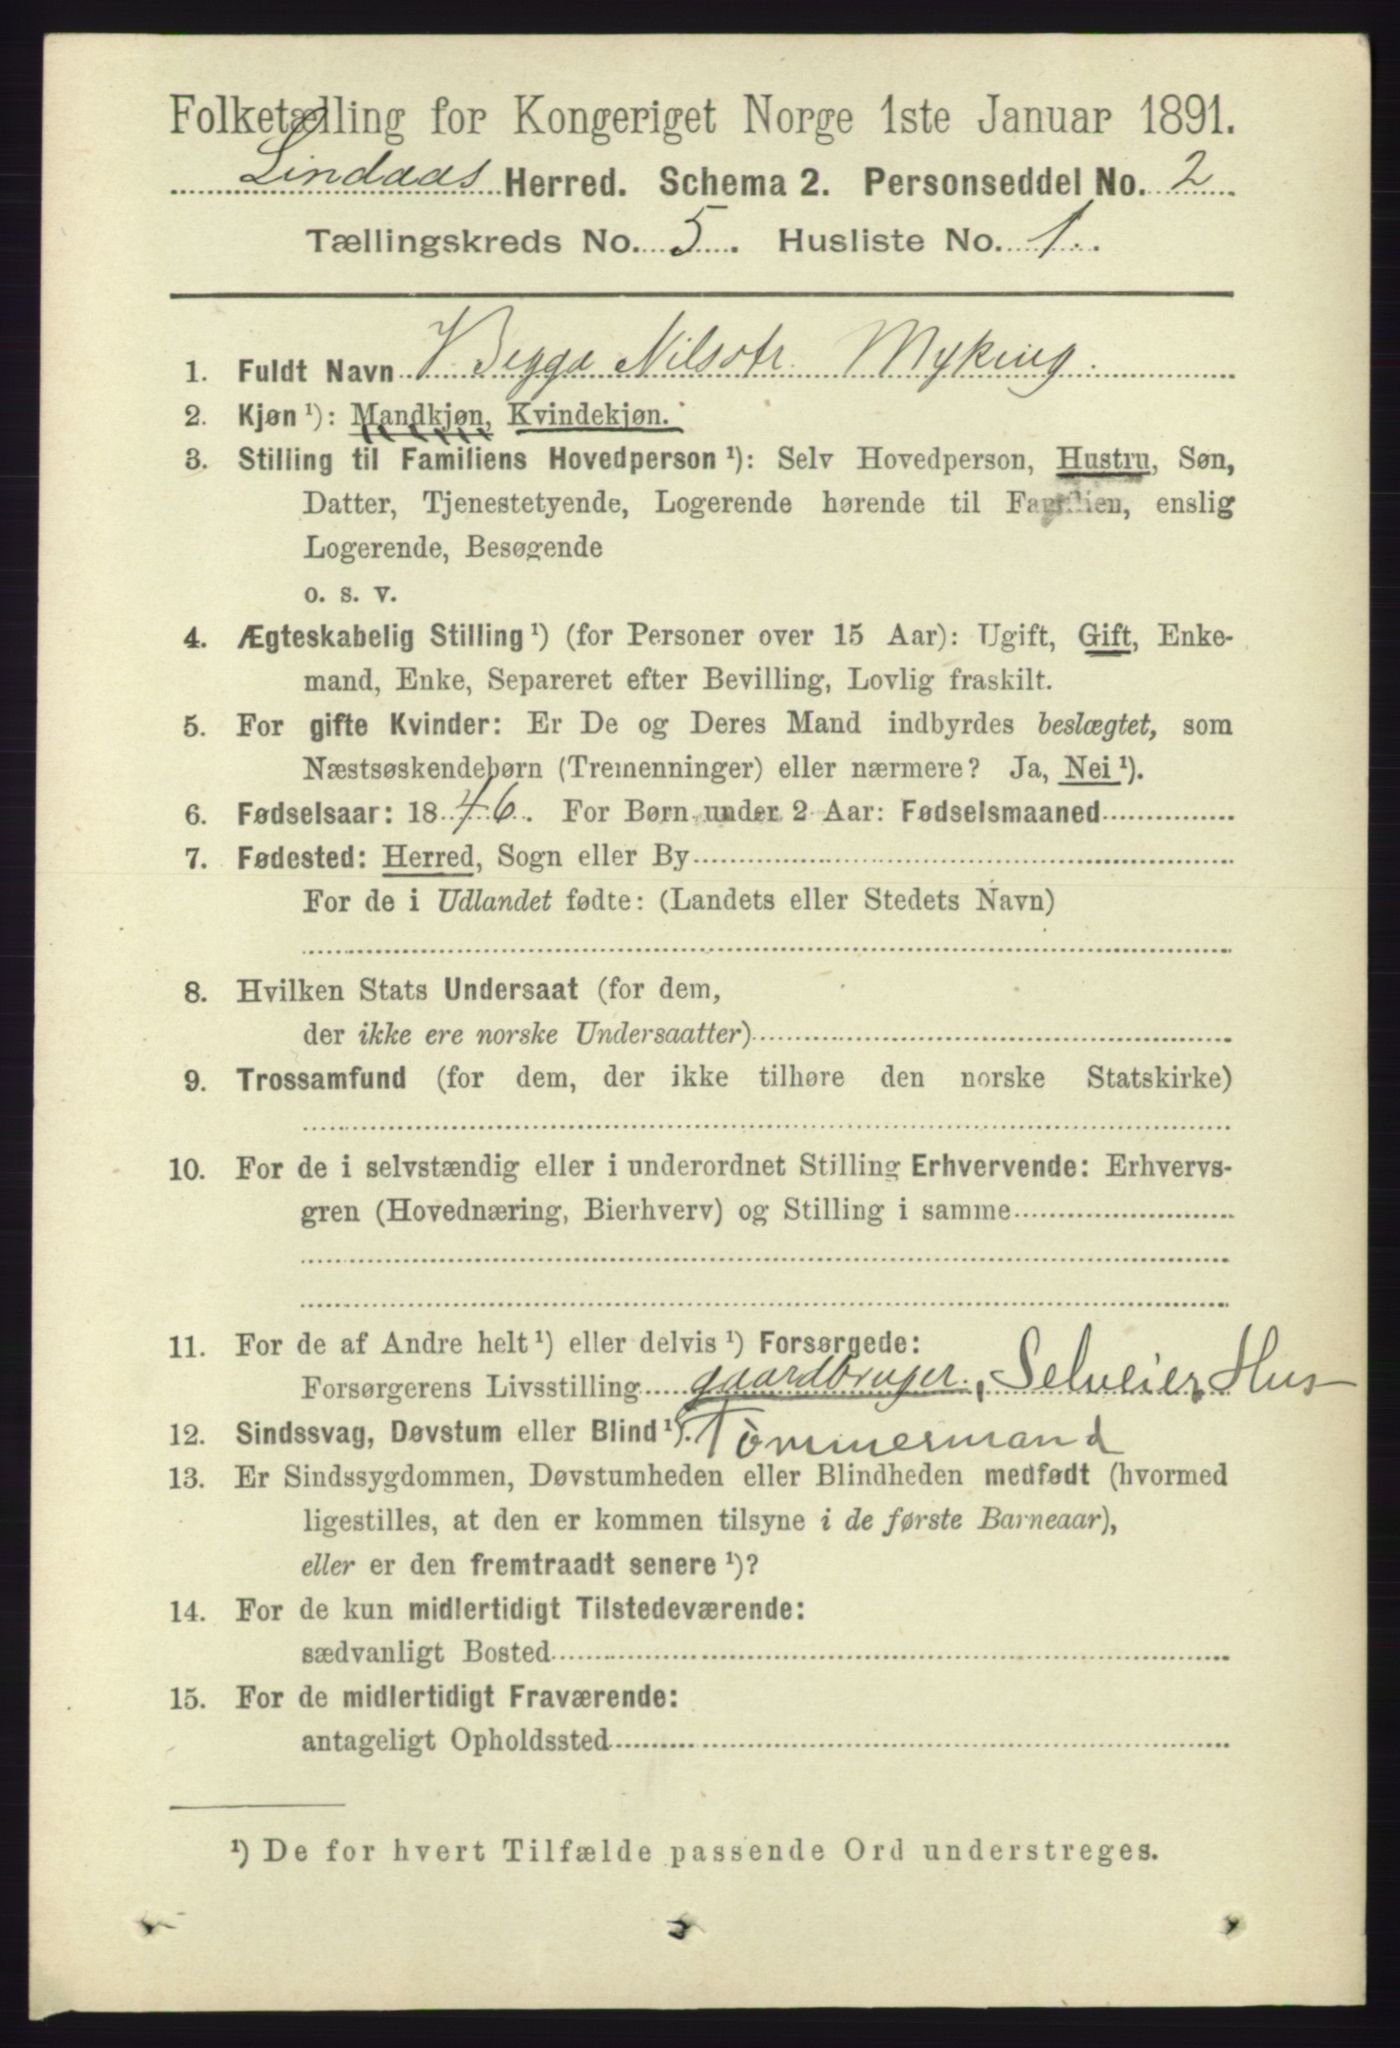 Folketælling for Kongeriget Norge 1ste Januar 1891.
Lindaas Herred. Schema 2. Personseddel No. 2
Tællingskreds No. 5. Husliste No. 1.
1. Fuldt Navn Begga Nilsdtr. Myking.
2. Kjøn ¹): Mandkjøn, Kvindekjøn.
3. Stilling til Familiens Hovedperson ¹): Selv Hovedperson, Hustru, Søn,
Datter, Tjenestetyende, Logerende hørende til Familien, enslig
Logerende, Besøgende
o. s. v.
4. Ægteskabelig Stilling ¹) (for Personer over 15 Aar): Ugift, Gift, Enke-
mand, Enke, Separeret efter Bevilling, Lovlig fraskilt.
5. For gifte Kvinder: Er De og Deres Mand indbyrdes beslægtet, som
Næstsøskendebørn (Tremenninger) eller nærmere? Ja, Nei ¹).
6. Fødselsaar: 1846. For Børn under 2 Aar: Fødselsmaaned
7. Fødested: Herred, Sogn eller By
For de i Udlandet fødte: (Landets eller Stedets Navn)
8. Hvilken Stats Undersaat (for dem,
der ikke ere norske Undersaatter)
9. Trossamfund (for dem, der ikke tilhøre den norske Statskirke)
10. For de i selvstændig eller i underordnet Stilling Erhvervende: Erhvervs-
gren (Hovednæring, Bierhverv) og Stilling i samme
11. For de af Andre helt ¹) eller delvis ¹) Forsørgede:
Forsørgerens Livsstilling gaardbruger, Selveier, Hus-
12. Sindssvag, Døvstum eller Blind ¹). Tömmermand
13. Er Sindssygdommen, Døvstumheden eller Blindheden medfødt (hvormed
ligestilles, at den er kommen tilsyne i de første Barneaar),
eller er den fremtraadt senere ¹)?
14. For de kun midlertidigt Tilstedeværende:
sædvanligt Bosted
15. For de midlertidigt Fraværende:
antageligt Opholdssted
¹) De for hvert Tilfælde passende Ord understreges.